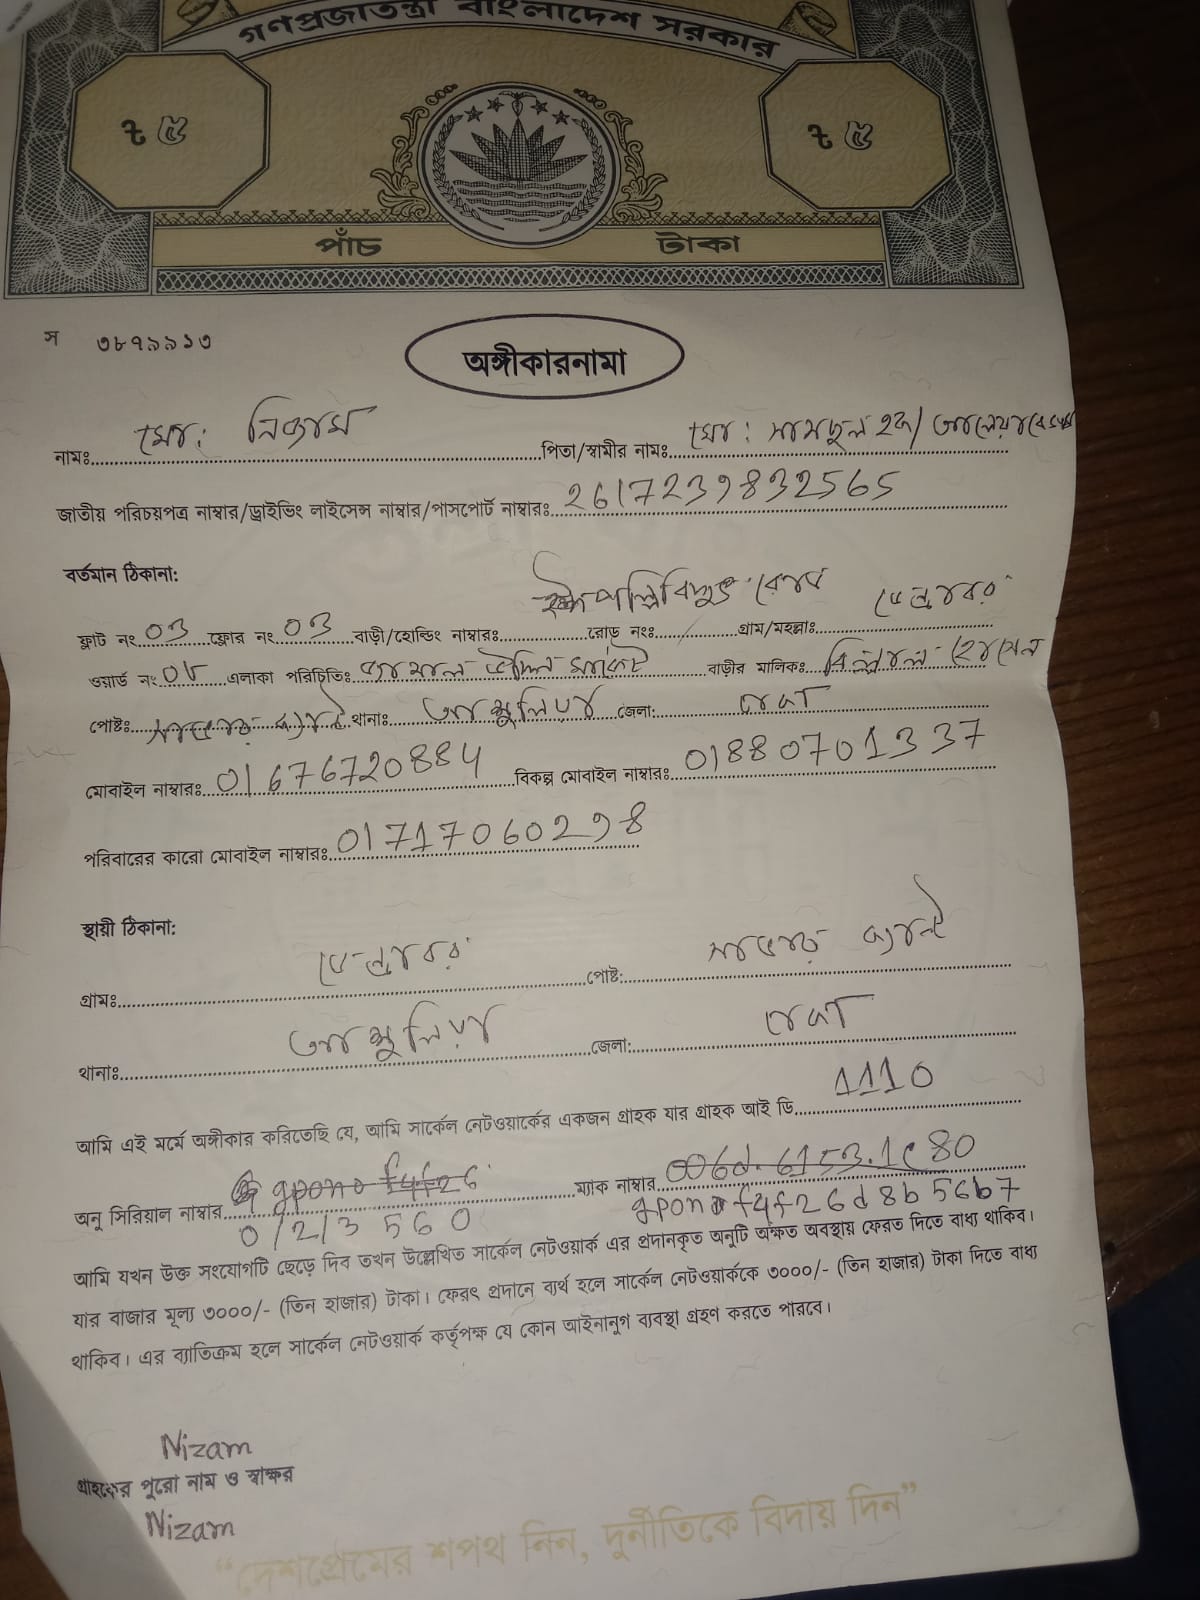 গণপ্রজাতন্ত্রী বাংলাদেশ সরকার
৳ ৫ ৳ ৫
পাঁচ টাকা
স ৩৮৭৯৯১৩
অঙ্গীকারনামা
নামঃ মোঃ নিজাম পিতা/স্বামীর নাম: মোঃ সামছুল হক/
জাতীয় পরিচয়পত্র নাম্বার/ড্রাইভিং লাইসেন্স নাম্বার/পাসপোর্ট নাম্বারঃ 2617239832565
বর্তমান ঠিকানা:
ফ্লাট নং 03 ফ্লোর নং 03 বাড়ী/হোল্ডিং নাম্বারঃ পল্লিবিদ্যুৎ রোড রোড নংঃ গ্রাম/মহল্লাঃ
ওয়ার্ড নং 05 এলাকা পরিচিতিঃ বাড়ীর মালিকঃ হোসেন
পোষ্টঃ থানাঃ আশুলিয়া জেলা: ঢাকা
মোবাইল নাম্বারঃ 01676720884 বিকল্প মোবাইল নাম্বারঃ 01880701337
পরিবারের কারো মোবাইল নাম্বারঃ 01717060298
স্থায়ী ঠিকানা:
গ্রামঃ পোষ্ট:
থানাঃ আশুলিয়া জেলা: ঢাকা
আমি এই মর্মে অঙ্গীকার করিতেছি যে, আমি সার্কেল নেটওয়ার্কের একজন গ্রাহক যার গ্রাহক আই ডি 1110
অনু সিরিয়াল নাম্বার gpono f4f26 ম্যাক নাম্বার 006d.6153.1c80
0/2/3 560 gpon0f4f26d8b56b7
আমি যখন উক্ত সংযোগটি ছেড়ে দিব তখন উল্লেখিত সার্কেল নেটওয়ার্ক এর প্রদানকৃত অনুটি অক্ষত অবস্থায় ফেরত দিতে বাধ্য থাকিব।
যার বাজার মূল্য ৩০০০/- (তিন হাজার) টাকা। ফেরৎ প্রদানে ব্যর্থ হলে সার্কেল নেটওয়ার্ককে ৩০০০/- (তিন হাজার) টাকা দিতে বাধ্য
থাকিব। এর ব্যতিক্রম হলে সার্কেল নেটওয়ার্ক কর্তৃপক্ষ যে কোন আইনানুগ ব্যবস্থা গ্রহণ করতে পারবে।
Nizam
গ্রাহকের পুরো নাম ও স্বাক্ষর
Nizam
“দেশপ্রেমের শপথ নিন, দুর্নীতিকে বিদায় দিন”